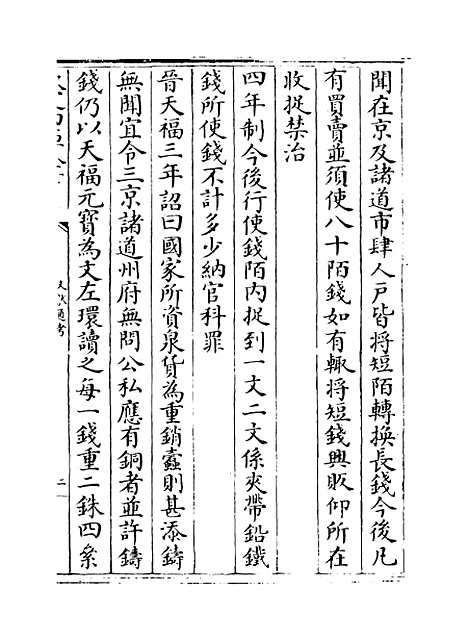 聞在京及諸道市肆人戶皆將短陌轉換長錢今後凡
有買賣並須使八十陌錢如有輒將短錢興販仰所在
收捉禁治
四年制今後行使錢陌内捉到一文二文係夾帶鉛鐵
錢所使錢不計多少納官科罪
晉天福三年詔曰國家所資泉貨為重銷蠹則甚添鑄
無聞宜令三京諸道州府無問公私應有銅者並許鑄
錢仍以天福元寶為文左環讀之每一錢重二銖四絫
文獻通考
二